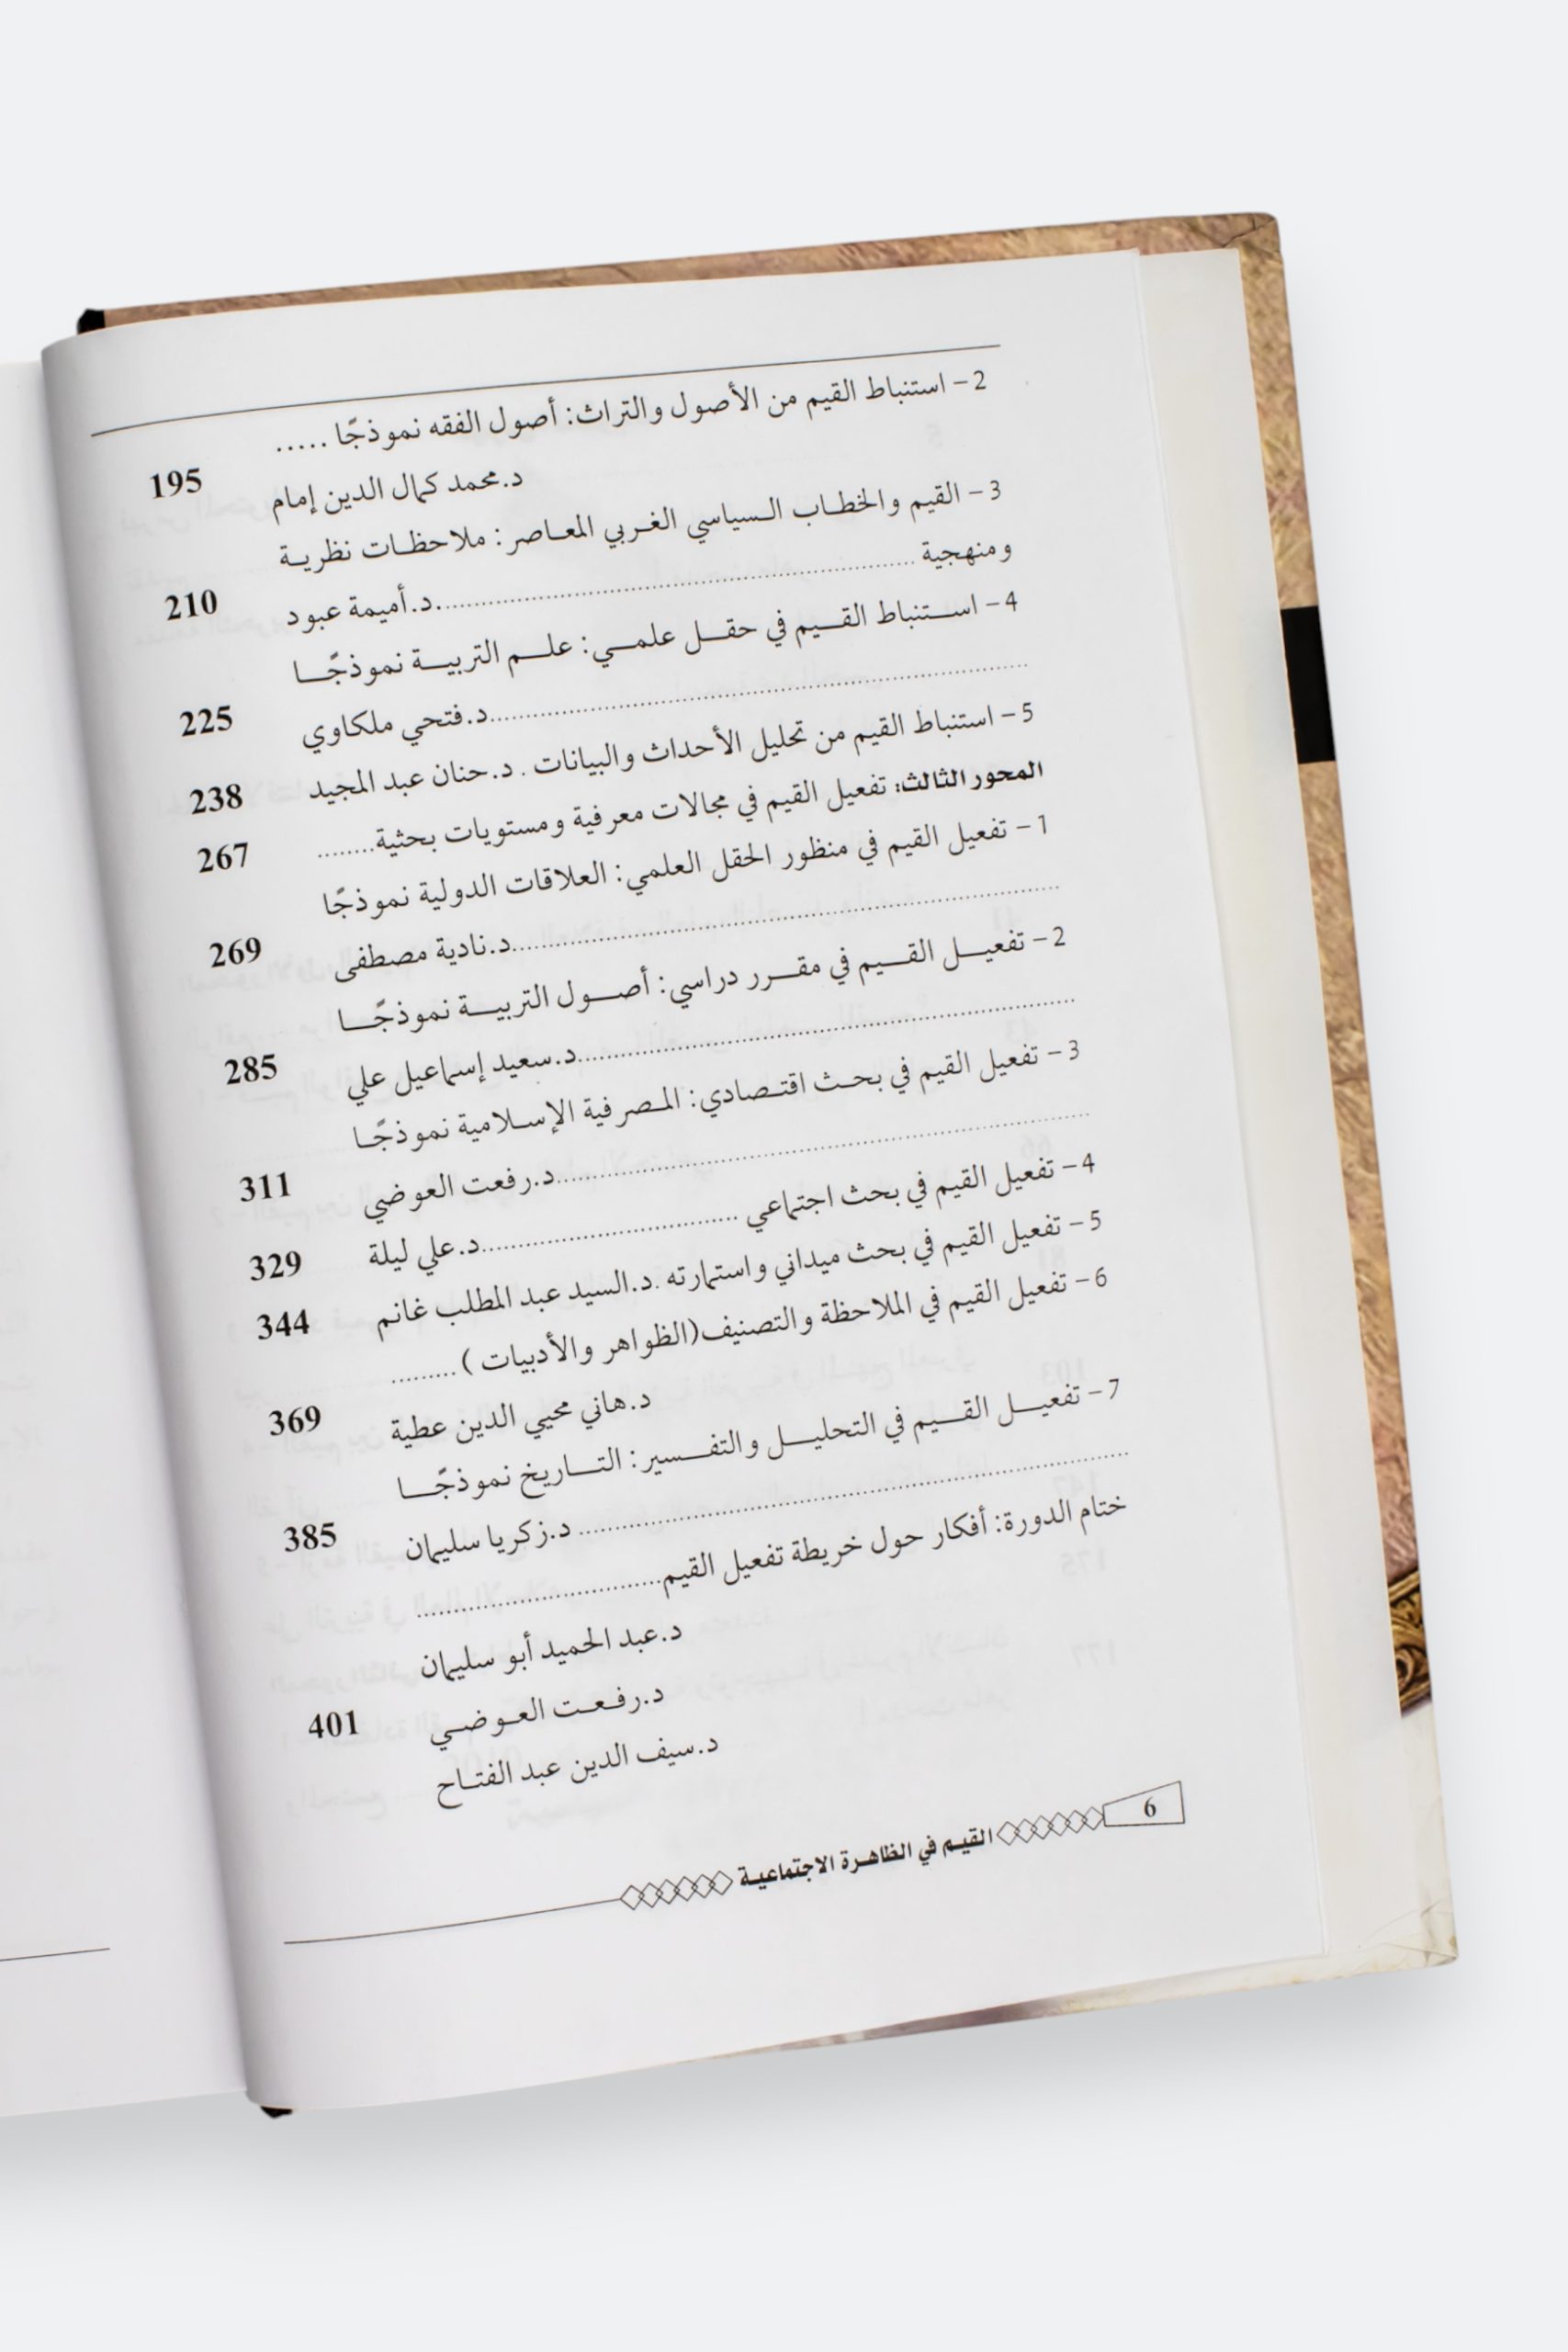 2- استنباط القيم من الأصول والتراث: أصول الفقه نموذجًا .....
د.محمد كمال الدين إمام 195
3- القيم والخطاب السياسي الغربي المعاصر: ملاحظات نظرية
ومنهجية ........................................د.أميمة عبود 210
4- استنباط القيم في حقل علمي: علم التربية نموذجًا
........................................د.فتحي ملكاوي 225
5- استنباط القيم من تحليل الأحداث والبيانات . د.حنان عبد المجيد 238
المحور الثالث: تفعيل القيم في مجالات معرفية ومستويات بحثية........ 267
1- تفعيل القيم في منظور الحقل العلمي: العلاقات الدولية نموذجًا
........................................د.نادية مصطفى 269
2- تفعيل القيم في مقرر دراسي: أصول التربية نموذجًا
........................................د.سعيد إسماعيل علي 285
3- تفعيل القيم في بحث اقتصادي: المصرفية الإسلامية نموذجًا
........................................د.رفعت العوضي 311
4- تفعيل القيم في بحث اجتماعي ..............................د.علي ليلة 329
5- تفعيل القيم في بحث ميداني واستمارته .د.السيد عبد المطلب غانم 344
6- تفعيل القيم في الملاحظة والتصنيف(الظواهر والأدبيات ) .........
د.هاني محيي الدين عطية 369
7- تفعيل القيم في التحليل والتفسير: التاريخ نموذجًا
........................................ د.زكريا سليمان 385
ختام الدورة: أفكار حول خريطة تفعيل القيم..............................
د.عبد الحميد أبو سليمان
د.رفعت العوضي 401
د.سيف الدين عبد الفتاح
6 القيم في الظاهرة الاجتماعية